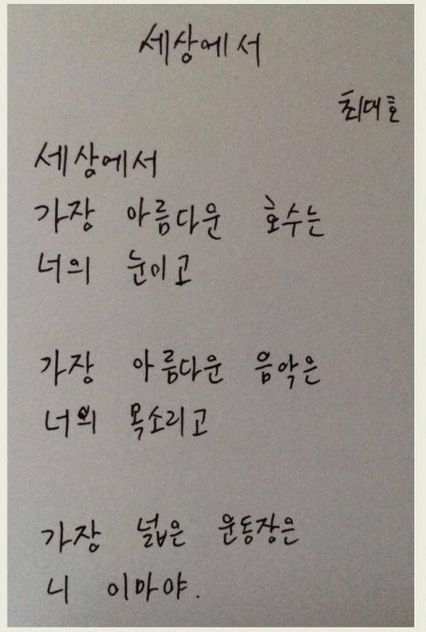 세상에서
최대호
세상에서
가장 아름다운 호수는
너의 눈이고
가장 아름다운 음악은
너의 목소리고
가장 넓은 운동장은
니 이마야.